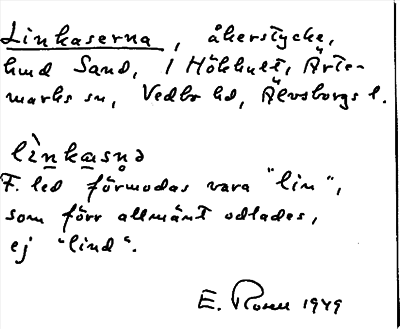 Linkaserna, åkerstycke,
hmd Sand, i Hökhult, Ärte-
marks sn, Vedbo hd, Älvsborgs l.
lìnkasn̥ə
F. led förmodas vara "lin",
som förr allmänt odlades,
ej "lind".
E. 1949